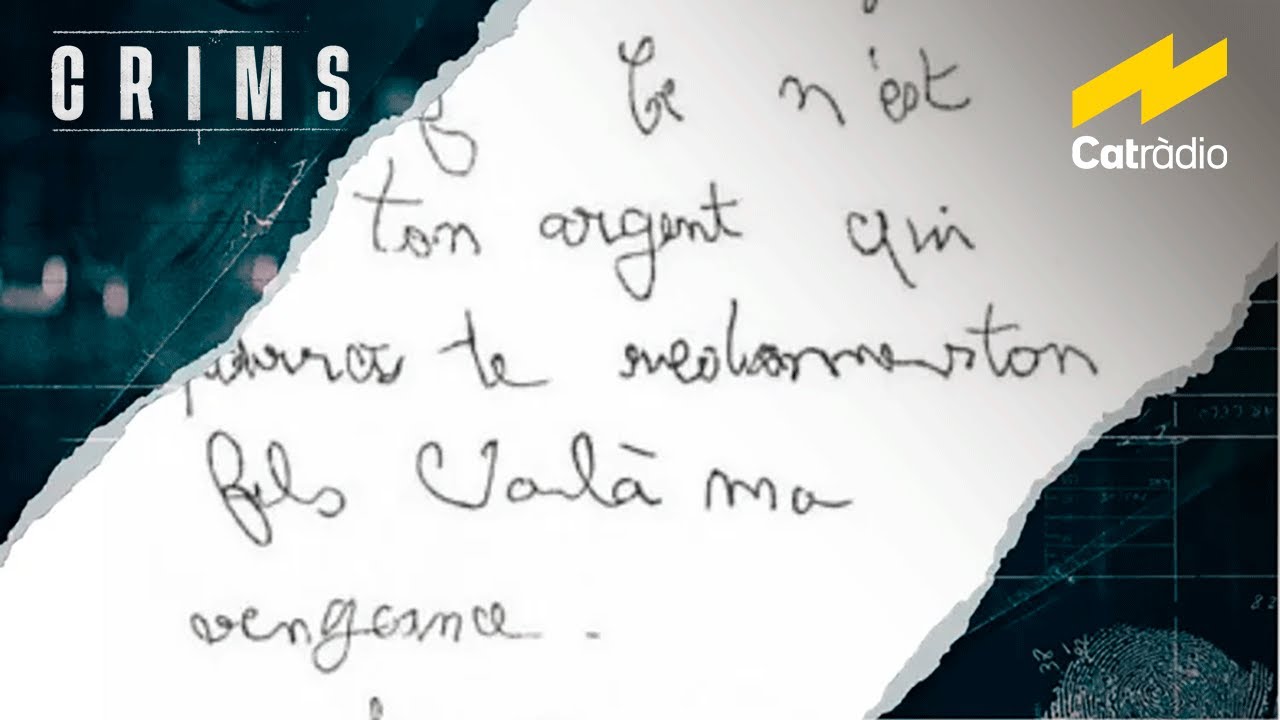 CRIMS
Catràdio
Ce n'est
ton argent qui
pourras te redonner ton
fils Voilà ma
vengeance.